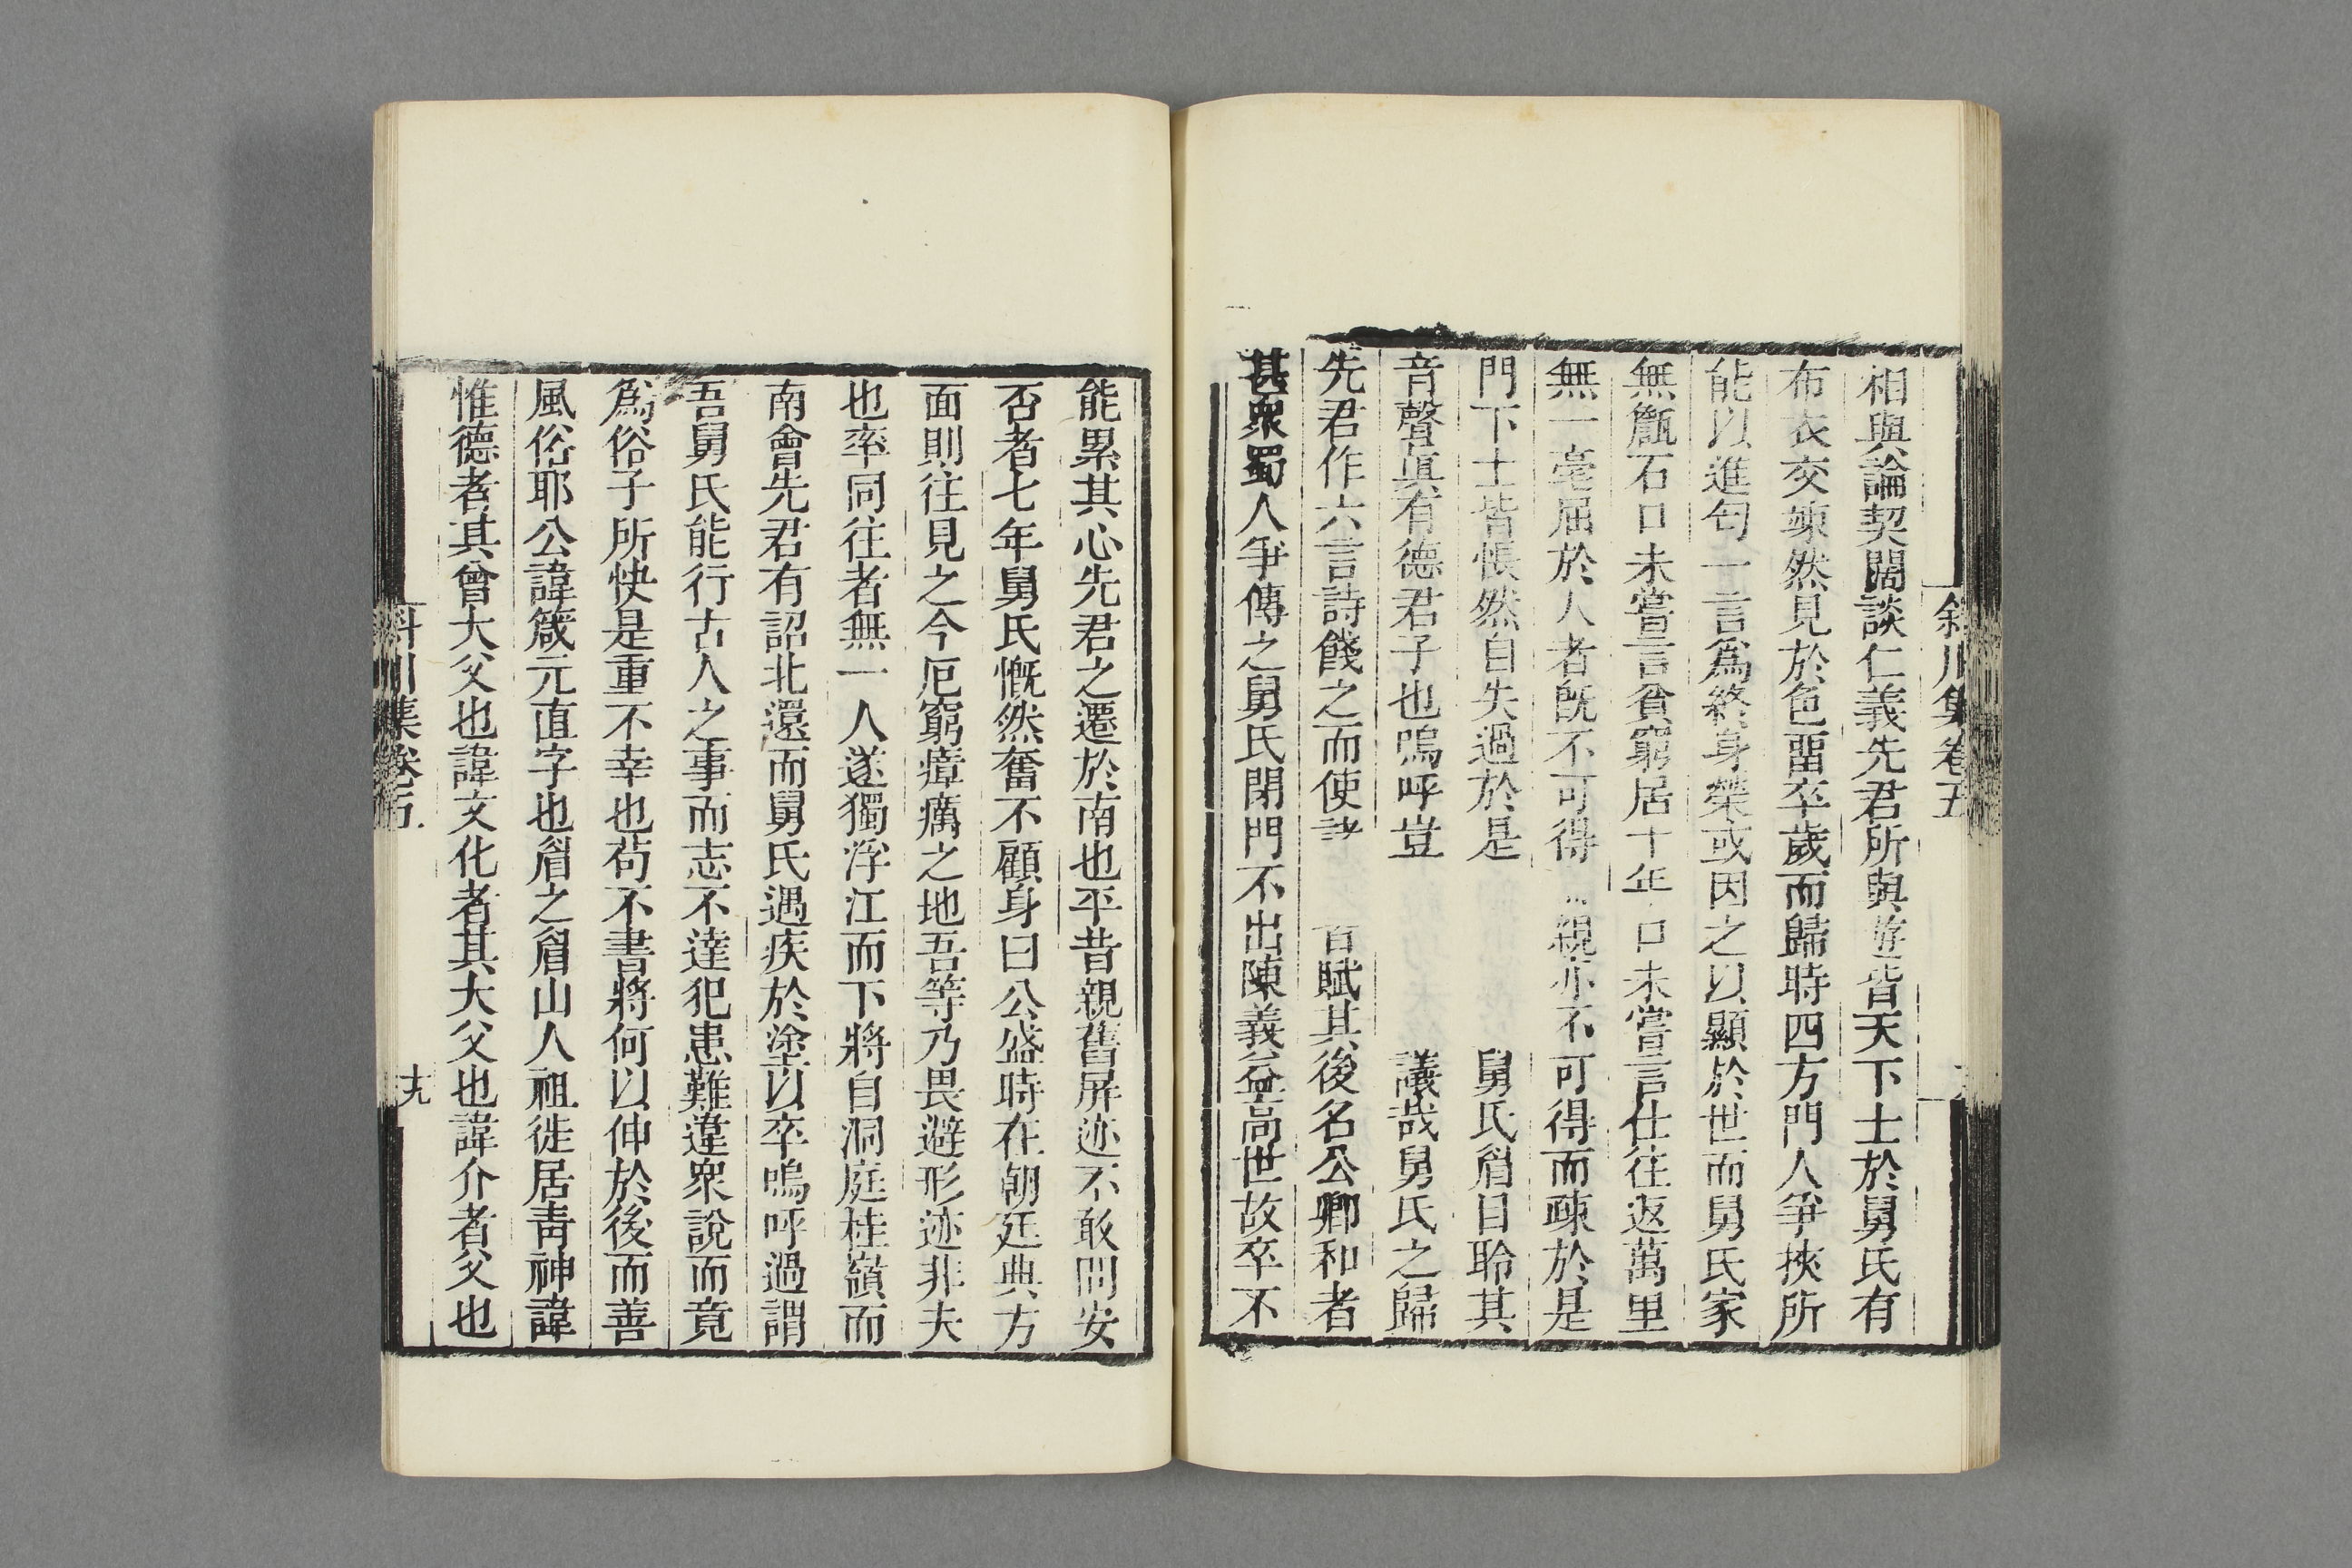 斜川集卷五
相與論契闊談仁義先君所與遊皆天下士於舅氏有
布衣交竦然見於色畱卒歲而歸時四方門人爭挾所
能以進匄一言爲終身榮或因之以顯於世而舅氏家
無甔石口未嘗言貧窮居十年口未嘗言仕往返萬里
無一毫屈於人者旣不可得親亦不可得而疎於是
門下士皆悵然自失過於是舅氏眉目聆其
音聲眞有德君子也嗚呼豈議哉舅氏之歸
先君作六言詩餞之而使賦其後名公卿和者
甚衆蜀人爭傳之舅氏閉門不出陳義益高世故卒不
能累其心先君之遷於南也平昔親舊屏迹不敢問安
否者七年舅氏慨然奮不顧身曰公盛時在朝廷典方
面則往見之今厄窮瘴癘之地吾等乃畏避形迹非夫
也率同往者無一人遂獨浮江而下將自洞庭桂嶺而
南會先君有詔北還而舅氏遇疾於塗以卒嗚呼過謂
吾舅氏能行古人之事而志不達犯患難違衆說而竟
爲俗子所快是重不幸也苟不書將何以伸於後而善
風俗耶公諱箴元直字也眉之眉山人祖徙居青神諱
惟德者其曾大父也諱文化者其大父也諱介者父也
斜川集卷五
十九